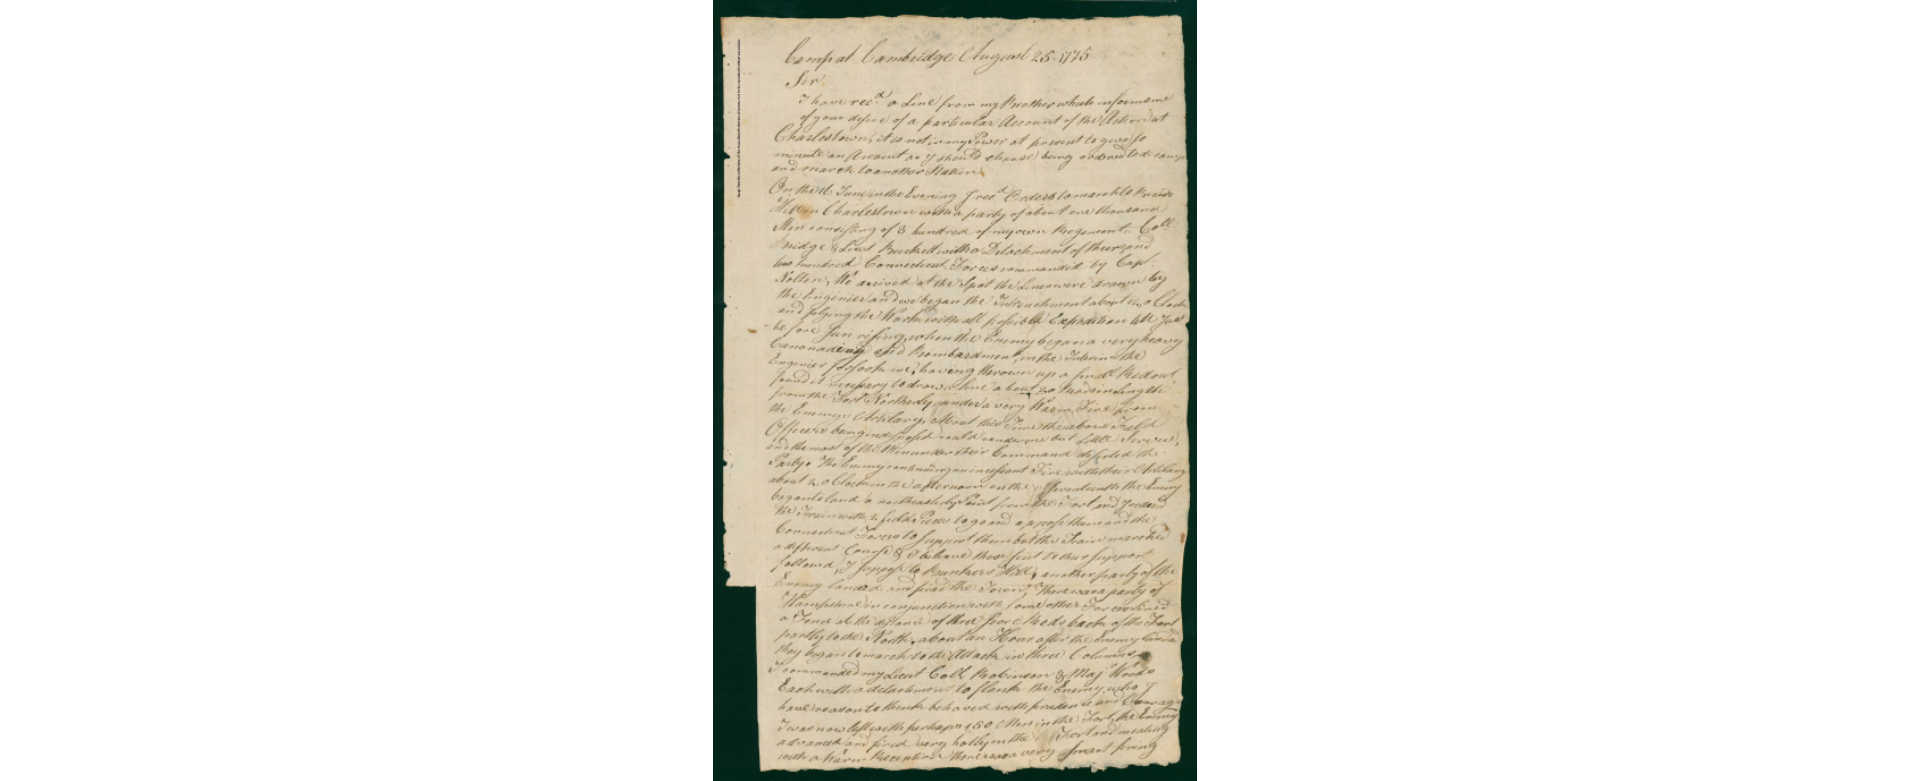 Camp at Cambridge August 25 1775
Sir
I have recd. a Line from my Brother which informs me
of your desire of a particular Account of the Action at
Charlestown, it is not in my Power at present to give so
minute an Account as I should choose being ordered to decamp
and march to another Station.
On the 16 June in the Evening I recd. Orders to march to Breeds
Hill in Charlestown with a party of about one thousand
Men consisting of 3 hundred of my own Regiment, Coll.
Bridge & Lieut Brickett with a Detachment of theirs, and
two hundred Connecticut Forces commanded by Capt.
Nolten, We arrived at the Spot the Lines were drawn by
the Enginier and we began the Intrenchment about 12, o Clock
and plying the Work with all possible Expodition till Just
before Sun rising, when the Enemy began a very heavy
Canonading and Bombardment, in the Interin the
Enginier forsook me, having thrown up a small Redout
found it necessary to draw a Line about 20 Rods in Length
from the Fort Northerly, under a very Warm Fire from
the Enemys Artilary, About this Time the above Field
Officers being indisposed could render me but Little Service,
and the most of the Men under their Command deserted the
Party. The Enemy continuing an incessant Fire with their Artilary
about 2, o Clock in the afternoon on the seventeenth the Enemy
began to land a northeasterly Point from the Fort, and I ordered
the Train with 2 field Pieces to go and oppose them and the
Connecticut Forces to support them but the Train marched
a different Course & I believe those sent to their support
followed, I suppose to Bunkers Hill, another party of the
Enemy landed and fired the Town, There was a party of
Hampshire in conjunction with some other Forces Lined
a Fence at the distance of three score Rods back of the Fort
partly to the North, about an Hour after the Enemy landed
they began to march to the Attack in three Columns,
I commanded my Lieut Coll. Robinson & Majr Woods
Each with a detachment to flank the Enemy, who I
have reason to think behaved with prudence and Courage
I was now left with perhaps 150 Men in the Fort, the Enemy
advanced and fired very hotly on the Fort and meating
with a Warm Reception there was a very smart firing